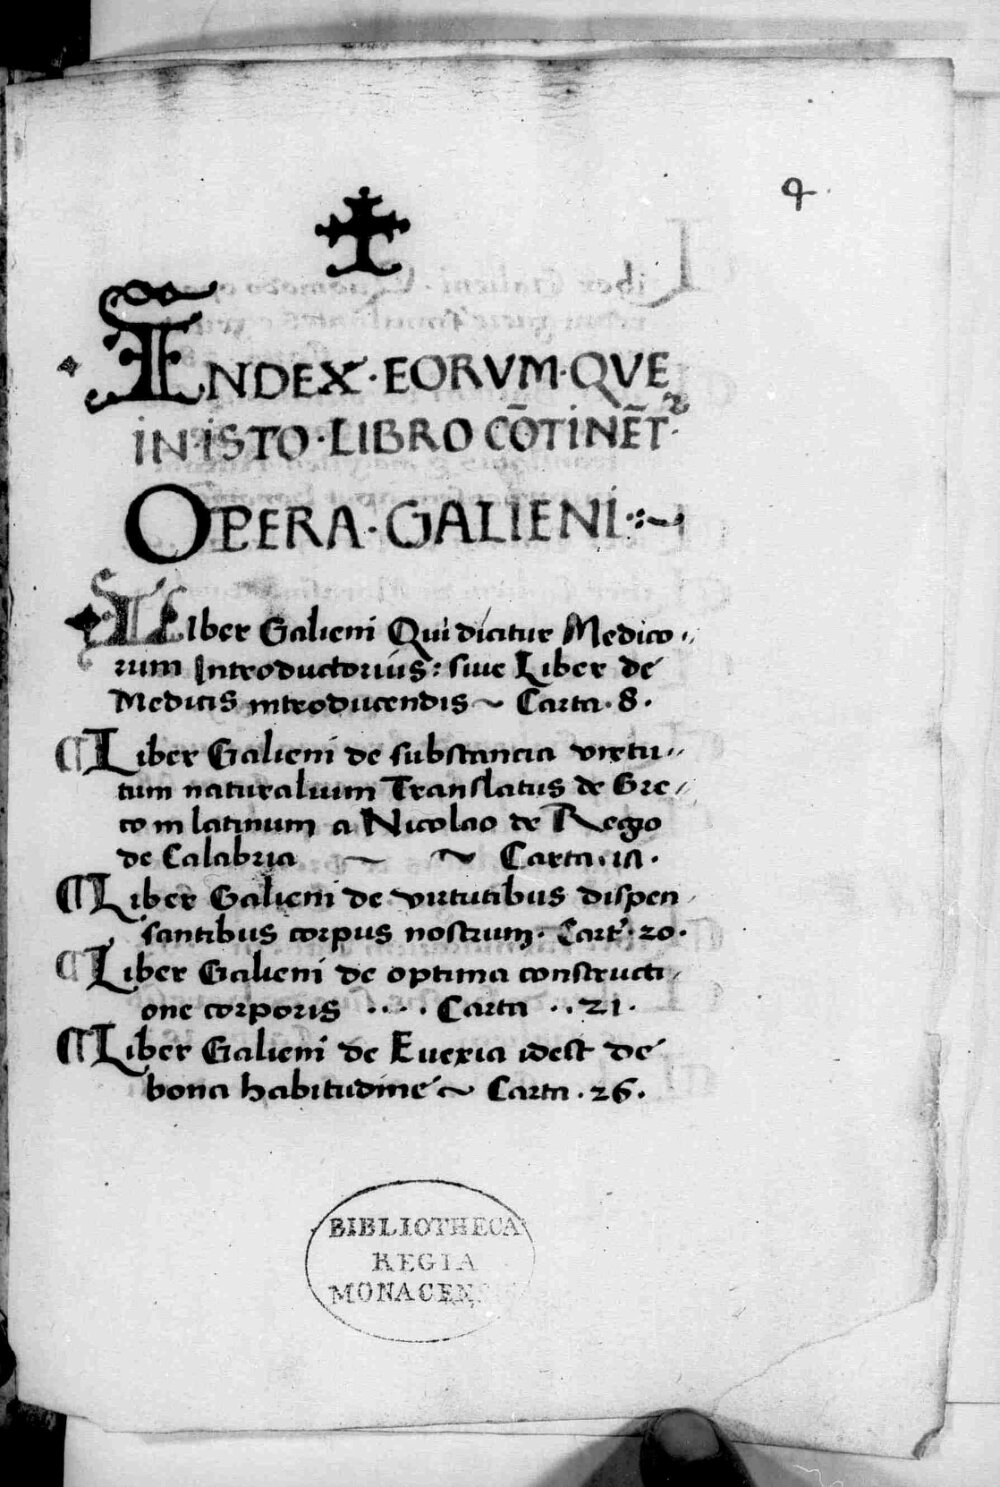 4
INDEX·EORVM·QVE
IN·ISTO·LIBRO CO̅TINE̅T᷑·
OPERA·GALIENI·:~
LIber Galieni Qui dicitur Medico·,
rum Introductorius: siue Liber de
Medicis introducendis ~ Carta·8·
¶ Liber Galieni de substancia virtu,,
tum naturalium Translatus de Gre,
co in latinum a Nicolao de Regio
de Calabria ~ ~ Carta·
¶ Liber Galieni de virtutibus dispen,
santibus corpus nostrum· Cart᷑·20·
¶ Liber Galieni de optima constructi,
one corporis ···· Carta ··21·
¶ Liber Galieni de Euexia idest de
bona habitudine ~ Carta·26·
BIBLIOTHECA
REGIA
MONACENS